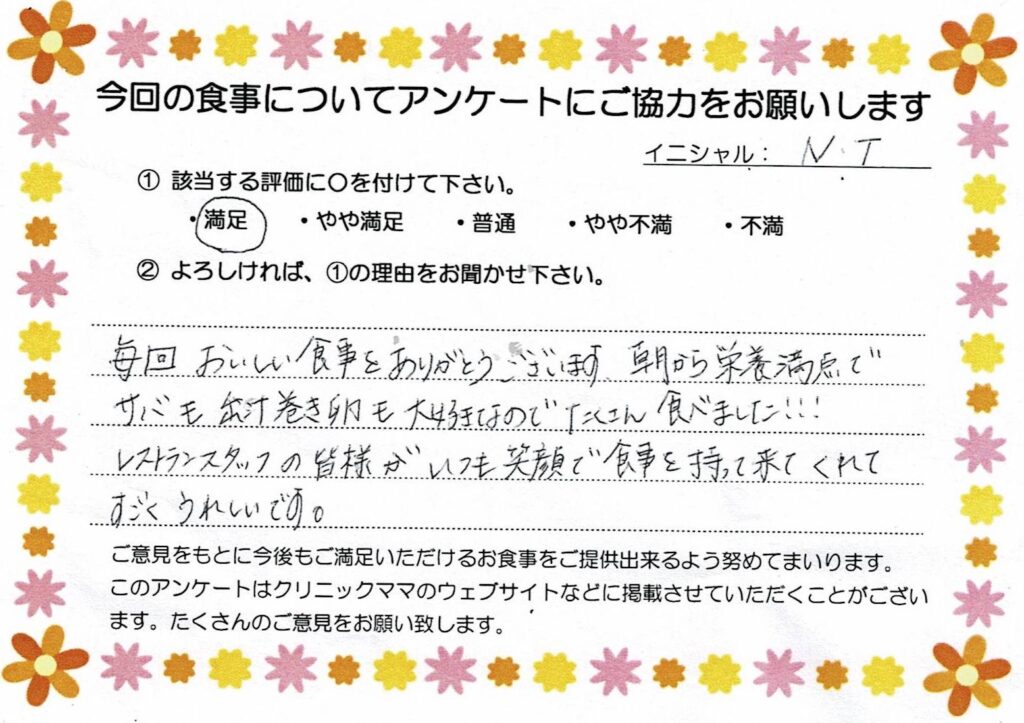 今回の食事についてアンケートにご協力をお願いします
イニシャル： N.T
① 該当する評価に〇を付けて下さい。
・満足 ・やや満足 ・普通 ・やや不満 ・不満
② よろしければ、①の理由をお聞かせ下さい。
毎回 おいしい食事をありがとうございます。朝から栄養満点で
サバも出汁巻き卵も大好きなのでたくさん食べました!!!
レストランスタッフの皆様がいつも笑顔で食事を持って来てくれて
すごくうれしいです。
ご意見をもとに今後もご満足いただけるお食事をご提供出来るよう努めてまいります。
このアンケートはクリニックママのウェブサイトなどに掲載させていただくことがござい
ます。たくさんのご意見をお願い致します。